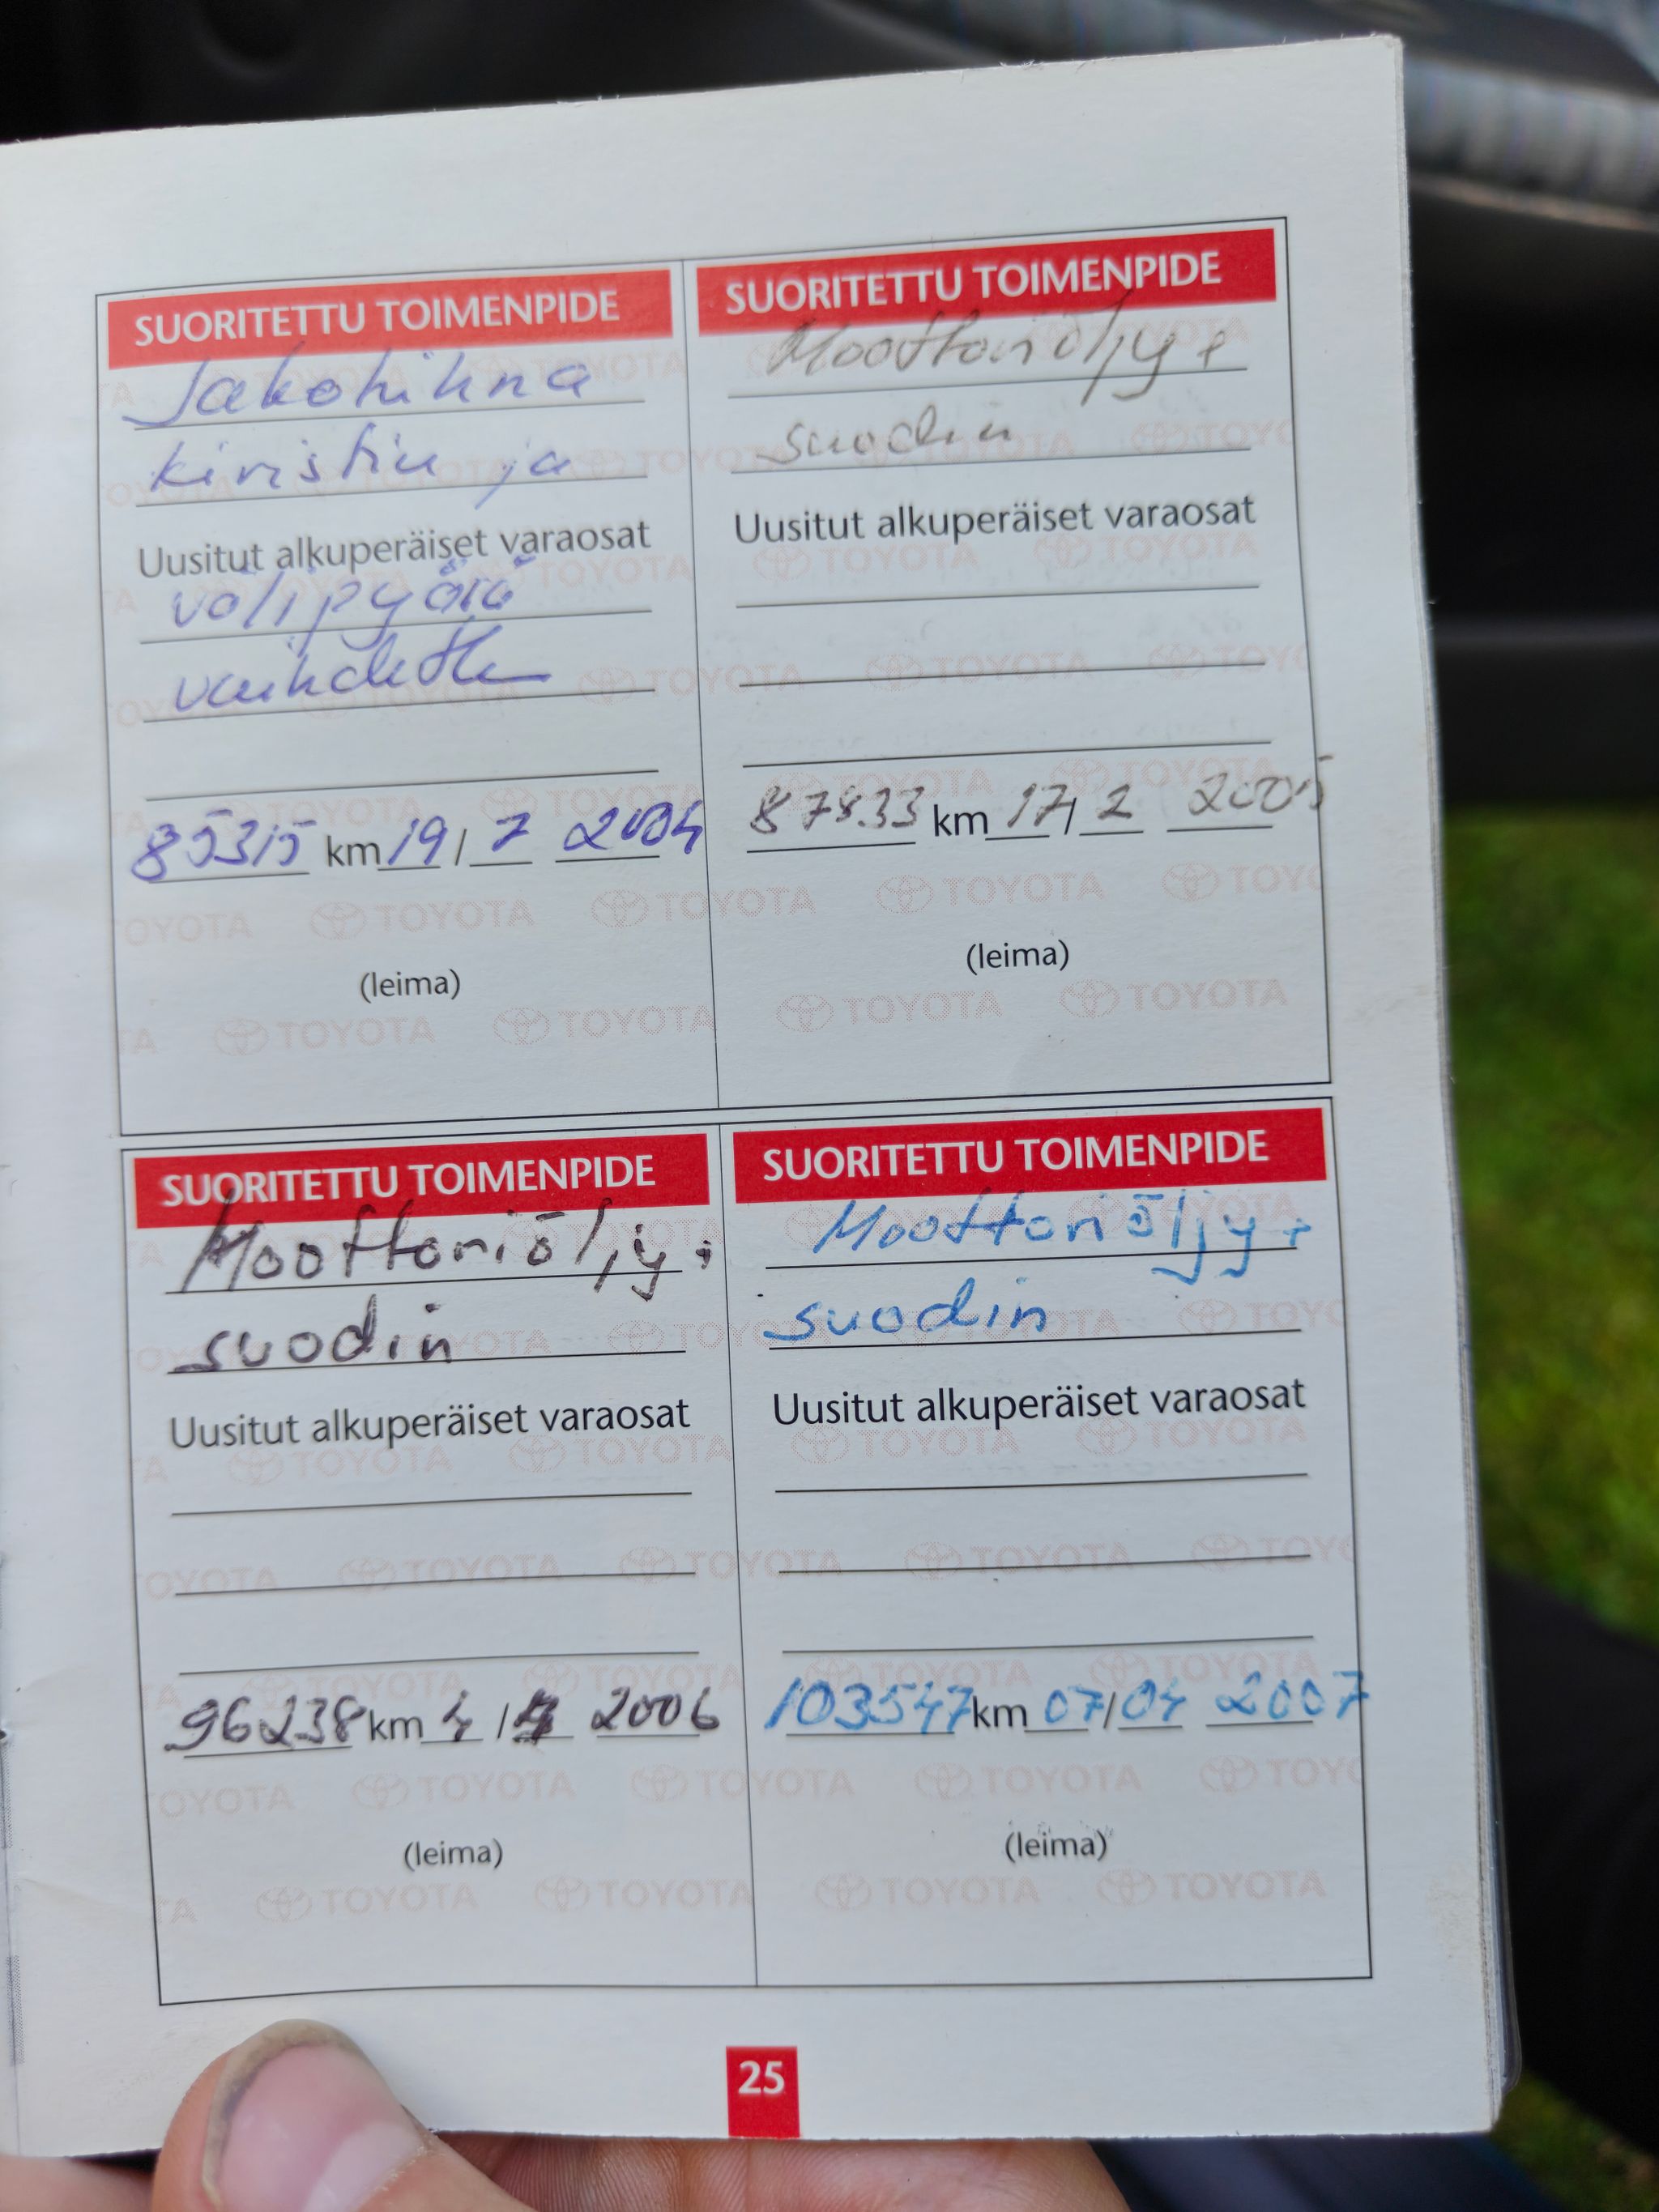 SUORITETTU TOIMENPIDE
Jakohihna
kiristin ja
Uusitut alkuperäiset varaosat
välipyörä
vaihdettu
85315 km 19 / 7 2004
(leima)
SUORITETTU TOIMENPIDE
Moottoriöljy +
suodin
Uusitut alkuperäiset varaosat
87833 km 17 / 2 2005
(leima)
SUORITETTU TOIMENPIDE
Moottoriöljy +
suodin
Uusitut alkuperäiset varaosat
96238 km 4 / 4 2006
(leima)
SUORITETTU TOIMENPIDE
Moottoriöljy +
suodin
Uusitut alkuperäiset varaosat
103547 km 07 / 04 2007
(leima)
25